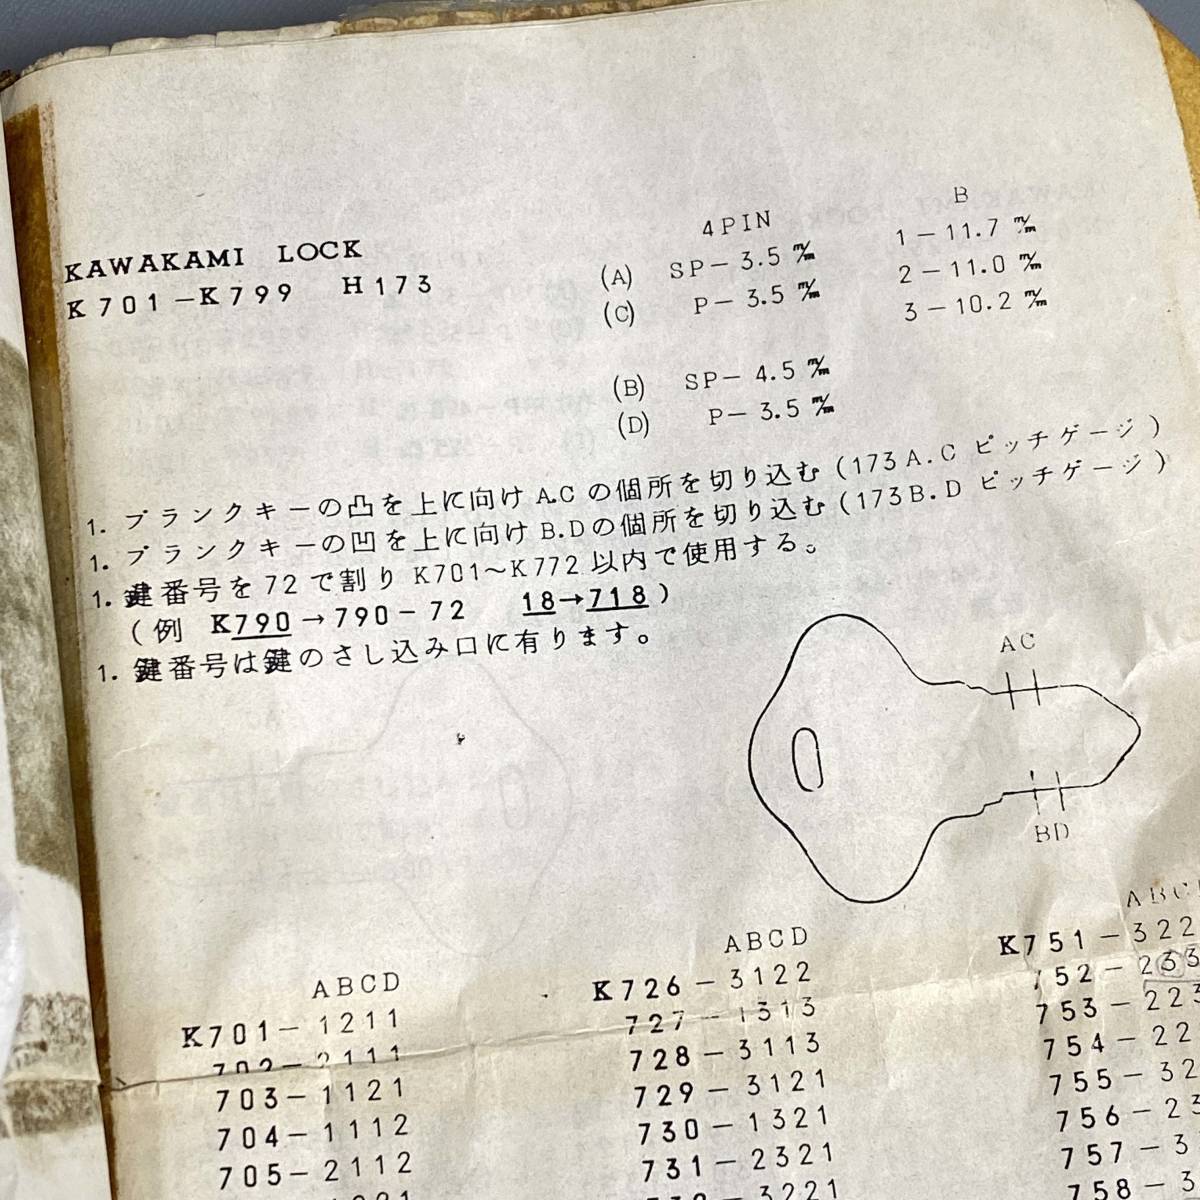 KAWAKAMI LOCK
K701-K799 H173
4PIN
(A) SP-3.5 m/m
(C) P-3.5 m/m
(B) SP-4.5 m/m
(D) P-3.5 m/m
B
1-11.7 m/m
2-11.0 m/m
3-10.2 m/m
1. ブランクキーの凸を上に向けA.Cの個所を切り込む(173A.C ピッチゲージ)
1. ブランクキーの凹を上に向けB.Dの個所を切り込む(173B.D ピッチゲージ)
1. 鍵番号を72で割りK701~K772以内で使用する。
(例 K790→790-72 18→718)
1. 鍵番号は鍵のさし込み口に有ります。
AC
BD
ABCD
K701-1211
702-2111
703-1121
704-1112
705-2112
ABCD
K726-3122
727-1313
728-3113
729-3121
730-1321
731-2321
3221
ABC
K751-322
752-233
753-223
754-22
755-32
756-23
757-3
758-3